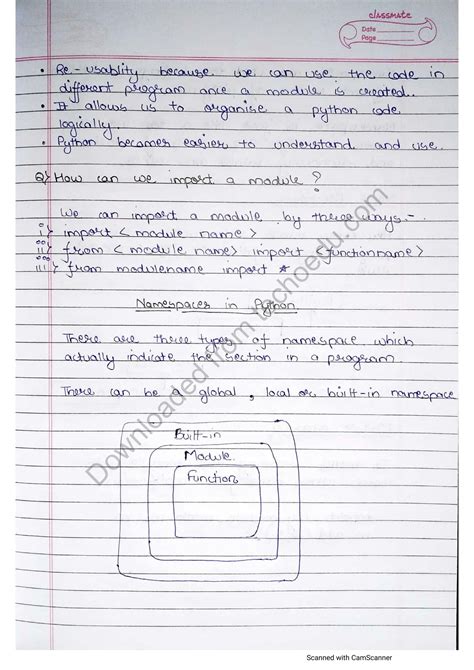 classmate
Date
Page
• Re-usablity because we can use the code in
different program once a module is created.
• It allows us to organise a python code
logically.
• Python becomes easier to understand and use.
Q) How can we import a module?
We can import a module by three ways.-
i) import <module name>
ii) from <module name> import <functionname>
iii) from modulename import *
Namespaces in Python
There are three types of namespace which
actually indicate the section in a program.
There can be a global, local or built-in namespace
Built-in
Module
Function
Downloaded from techoedu.com
Scanned with CamScanner